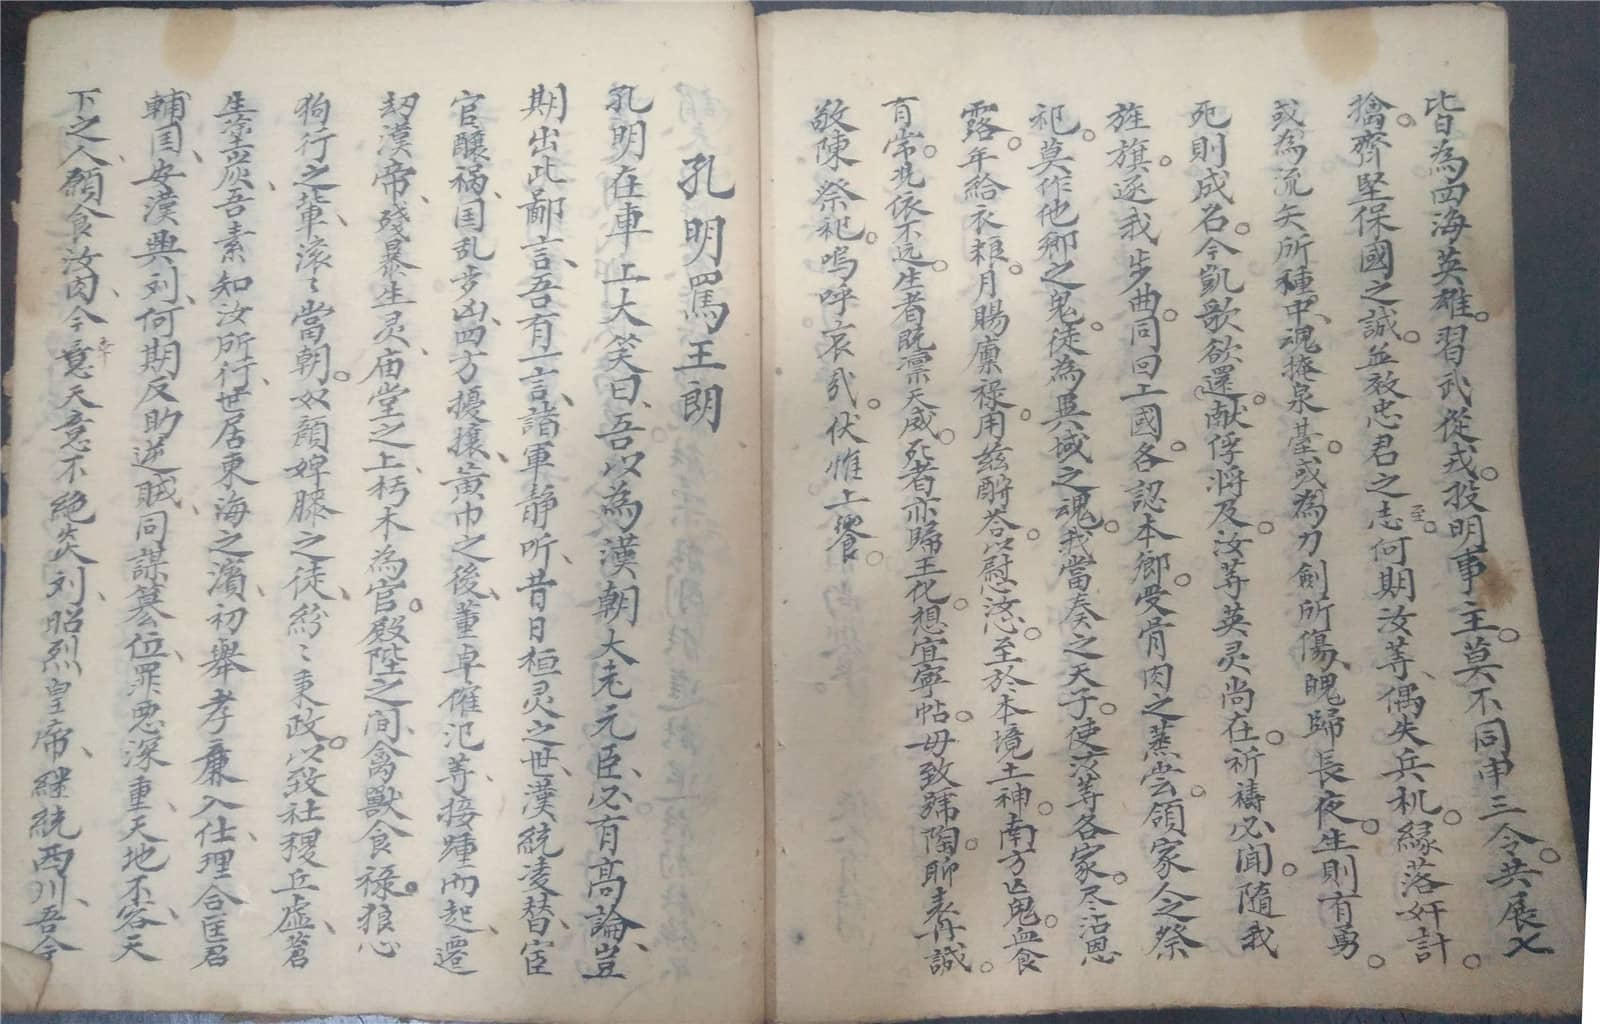 皆為四海英雄。習武從戎。投明事主。莫不同申三令。共展七
擒。齊堅保國之誠。並效忠君之志至。何期汝等、偶失兵机。緣落奸計。
或為流矢所種中、魂掩泉臺。或為刀劍所傷、魄歸長夜。生則有勇。
死則成名。今凱歌欲還。献俘將及。汝等英灵尚在。祈禱必闻。隨我
旌旗。逐我步曲。同回上國。各認本鄉。受骨肉之蒸尝。領家人之祭
祀。莫作他鄉之鬼。徒為異域之魂。我當奏之天子。使汝等各家。尽沾恩
露。年給衣粮。月賜廩禄。用兹酧答。以慰汝心。至於本境土神。南方亡鬼。血食
有常。凴依不远。生者既凛天威。死者亦歸王化。想宜寧帖。毋致號陶。聊表丹誠。
敬陳祭祀。嗚呼哀哉。伏惟上饗。
孔明罵王朗
孔明在車上大笑曰、吾以為漢朝大老元臣、必有高論、豈
期出此鄙言、吾有一言、諸軍静听、昔日桓灵之世、漢統凌替、宦
官釀祸、国乱步凶、四方擾攘、黄巾之後、董卓傕氾等、接踵而起、遷
刼漢帝、殘暴生灵、庙堂之上、朽木為官。殿陛之间、禽獸食禄。狼心
狗行之軰、滚〻當朝。奴顔婢膝之徒、紛〻秉政。以致社稷丘虛、蒼
生塗炭、吾素知汝所行、世居東海之濱、初舉孝廉入仕、理合匡君
輔国、安漢興刘、何期反助逆贼、同謀篡位、罪悪深重、天地不容、天
下之人、願食汝肉、今幸意天意不絶炎刘、昭烈皇帝、継統西川、吾今